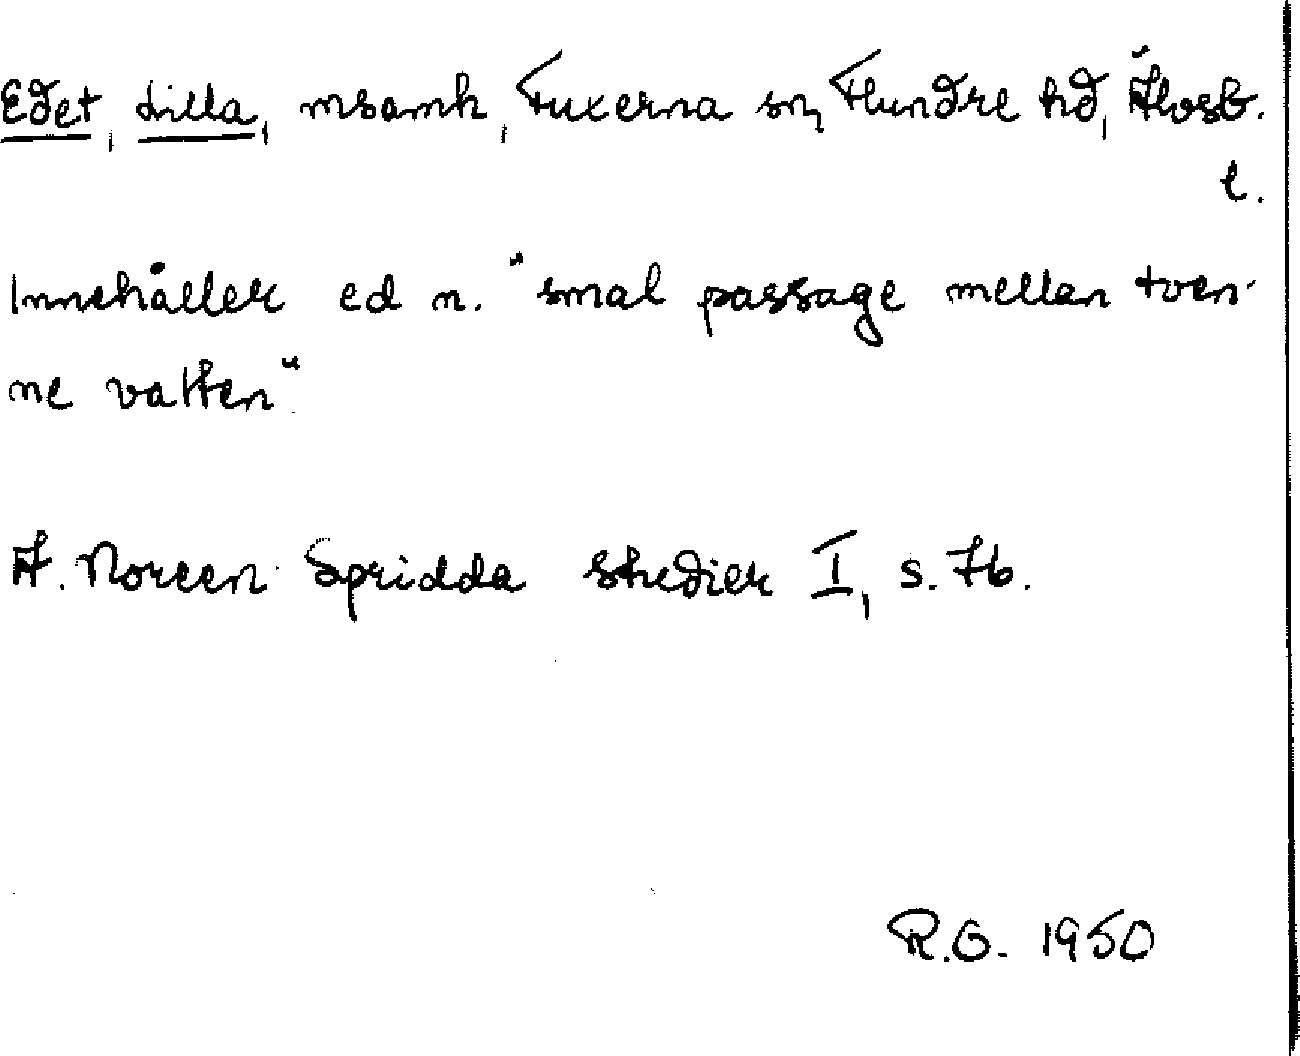 Edet, Lilla, msamh, Fuxerna sn, Flundre hd, Älvsb.
l.
Innehåller ed n. "smal passage mellan tven-
ne vatten".
A. Noreen Spridda studier I, s. 76.
R.G. 1950